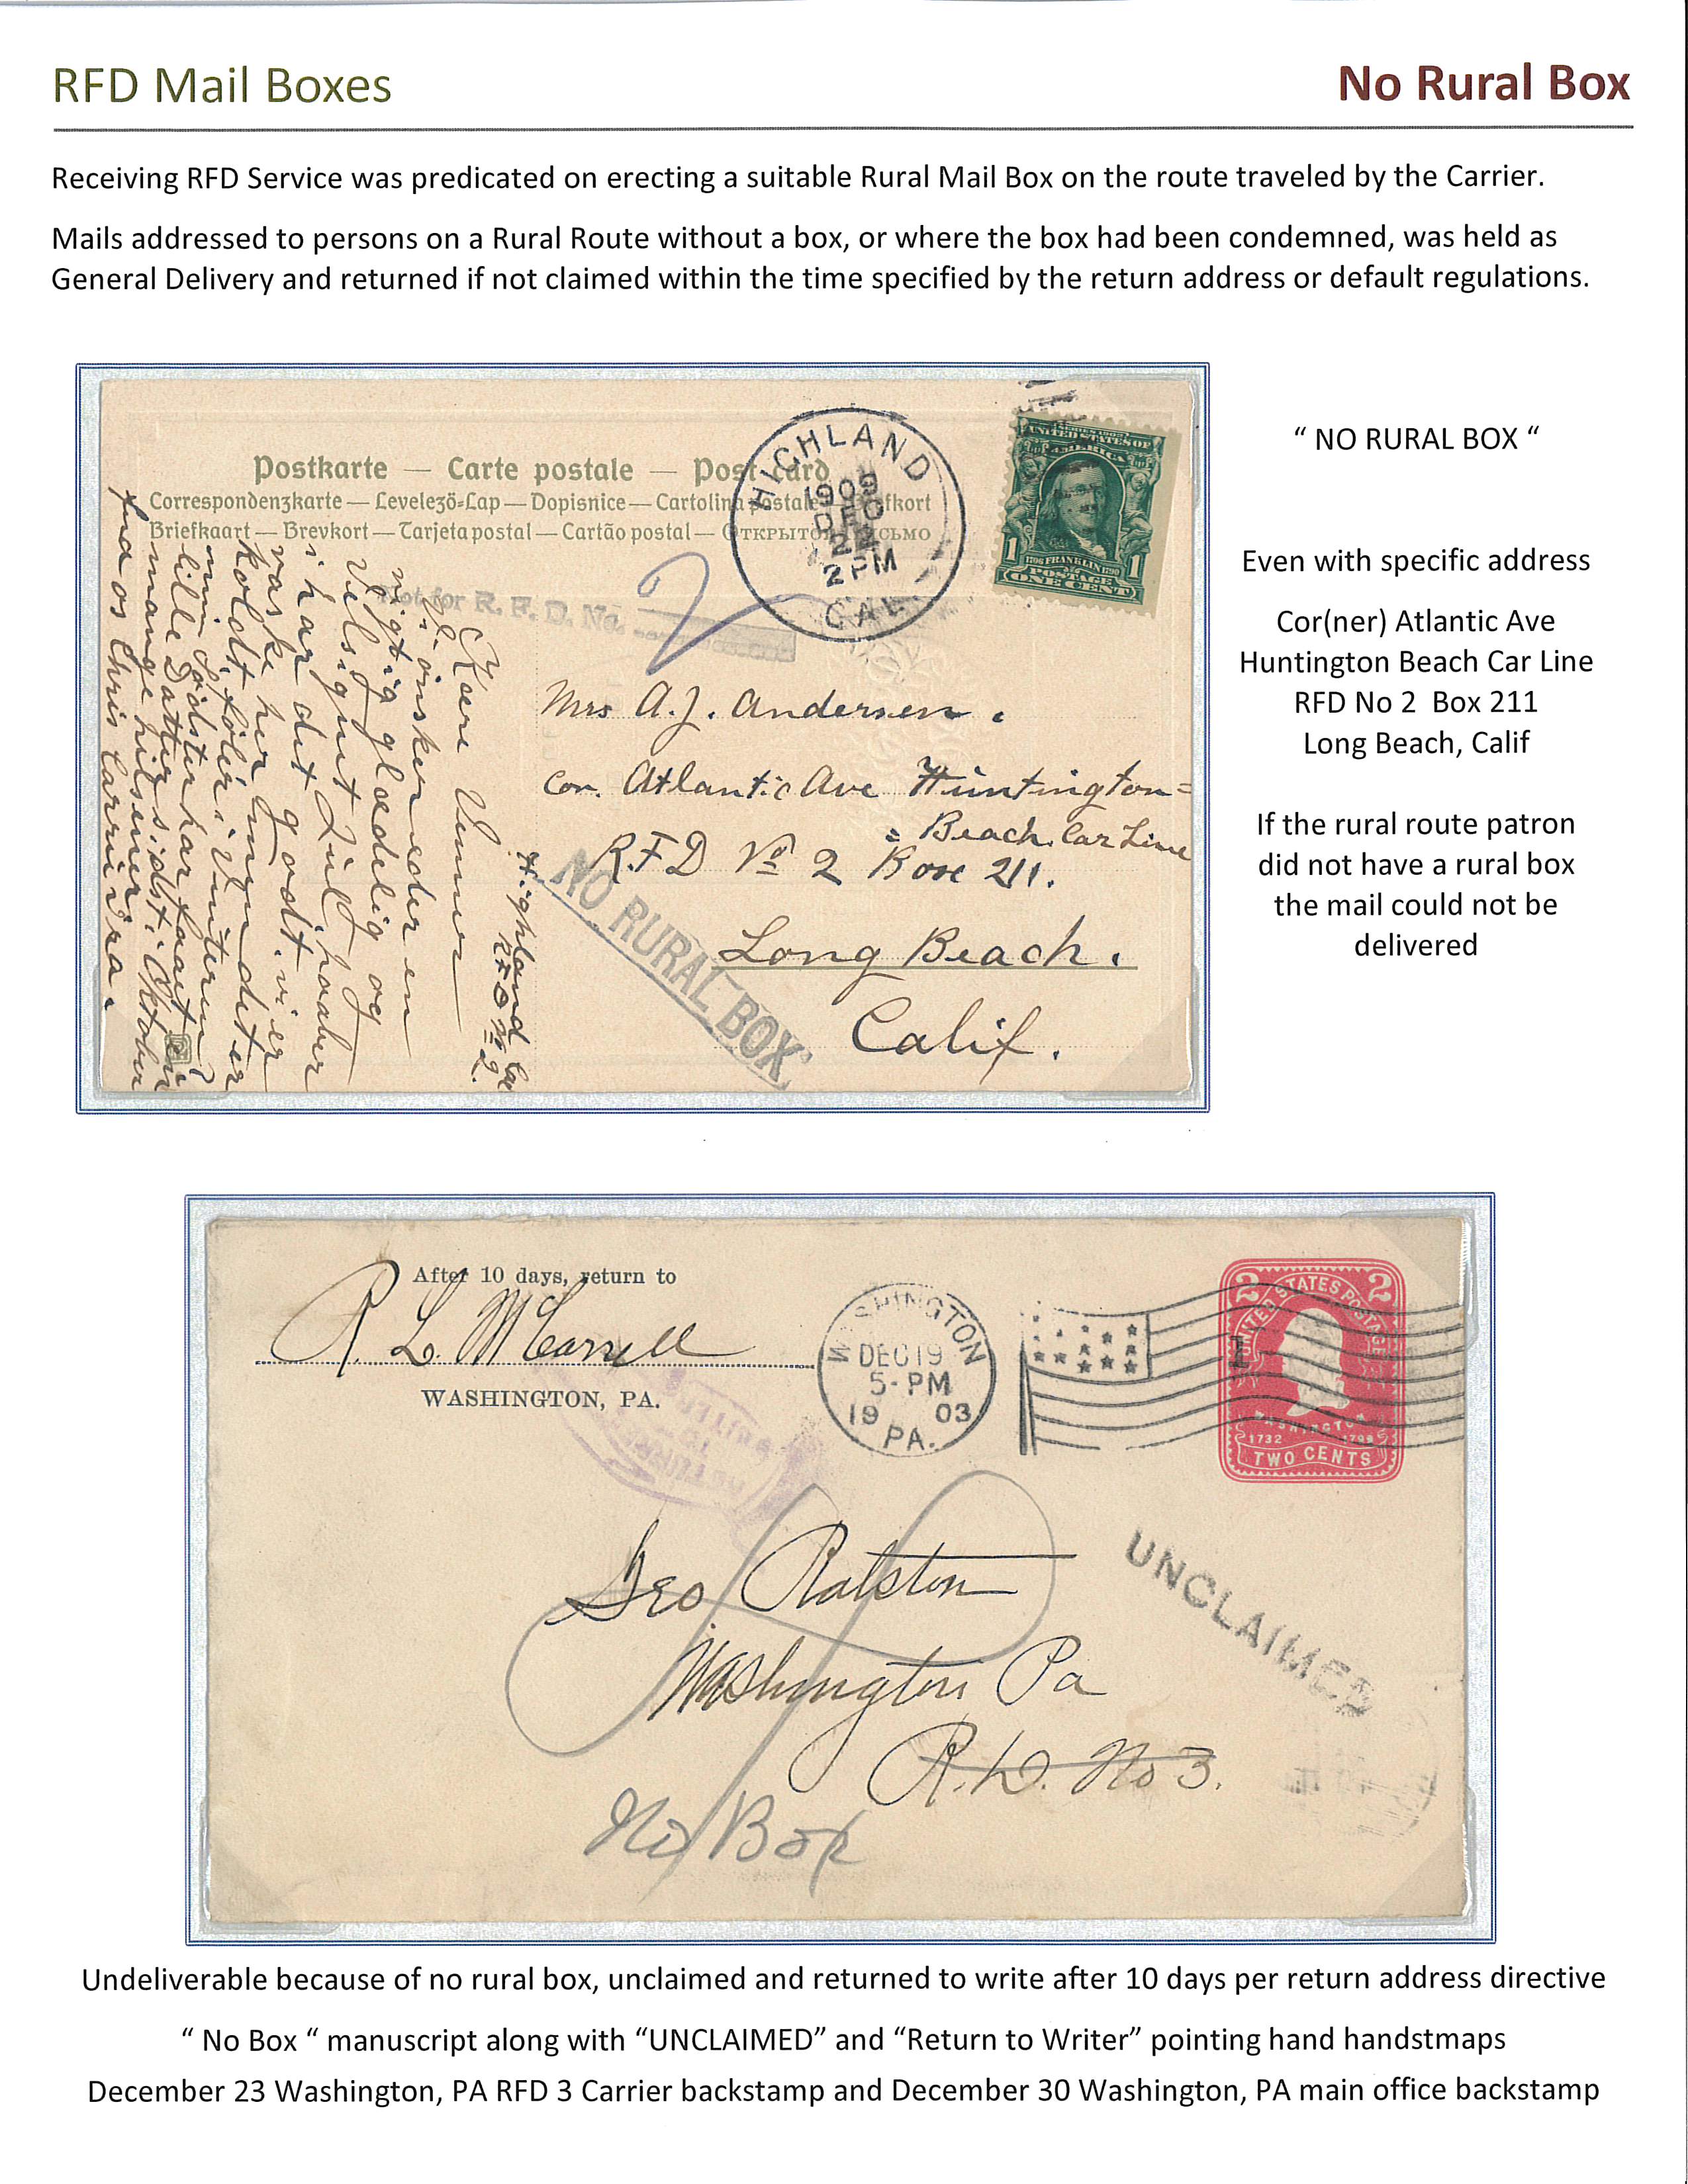 RFD Mail Boxes
No Rural Box
Receiving RFD Service was predicated on erecting a suitable Rural Mail Box on the route traveled by the Carrier.
Mails addressed to persons on a Rural Route without a box, or where the box had been condemned, was held as
General Delivery and returned if not claimed within the time specified by the return address or default regulations.
Postkarte — Carte postale — Post card
Correspondenzkarte — Levelezö-Lap — Dopisnice — Cartolina postale —
Briefkaart — Brevkort — Tarjeta postal — Cartão postal —
HIGHLAND
1909
DEC
22
2 PM
CAL
UNITED STATES OF
AMERICA
1 1706 FRANKLIN 1790 1
POSTAGE
ONE CENT
Not for R. F. D. No.
2
Kære Venner
Vi önsker eder en
rigtig glædelig og
Velsignet Jul, haaber
i har det godt. vi er
raske her men det er
koldt,
lille Datter sidst i Oktober
mange hilsener
fra os Chris
Highland Cal
RFD No 2.
Mrs A.J. Andersen.
Cor. Atlantic Ave Huntington=
= Beach. Car Line
RFD No 2 Box 211.
Long Beach.
Calif.
NO RURAL BOX
“ NO RURAL BOX “
Even with specific address
Cor(ner) Atlantic Ave
Huntington Beach Car Line
RFD No 2 Box 211
Long Beach, Calif
If the rural route patron
did not have a rural box
the mail could not be
delivered
After 10 days, return to
R. L. McCarrell
WASHINGTON, PA.
WASHINGTON
DEC 19
5- PM
19 03
PA.
1
2 UNITED STATES POSTAGE 2
WASHINGTON
1732 1799
TWO CENTS
UNCLAIMED
Geo Ralston
Washington Pa
R.D. No 3.
No Box
Undeliverable because of no rural box, unclaimed and returned to write after 10 days per return address directive
“ No Box “ manuscript along with “UNCLAIMED” and “Return to Writer” pointing hand handstmaps
December 23 Washington, PA RFD 3 Carrier backstamp and December 30 Washington, PA main office backstamp